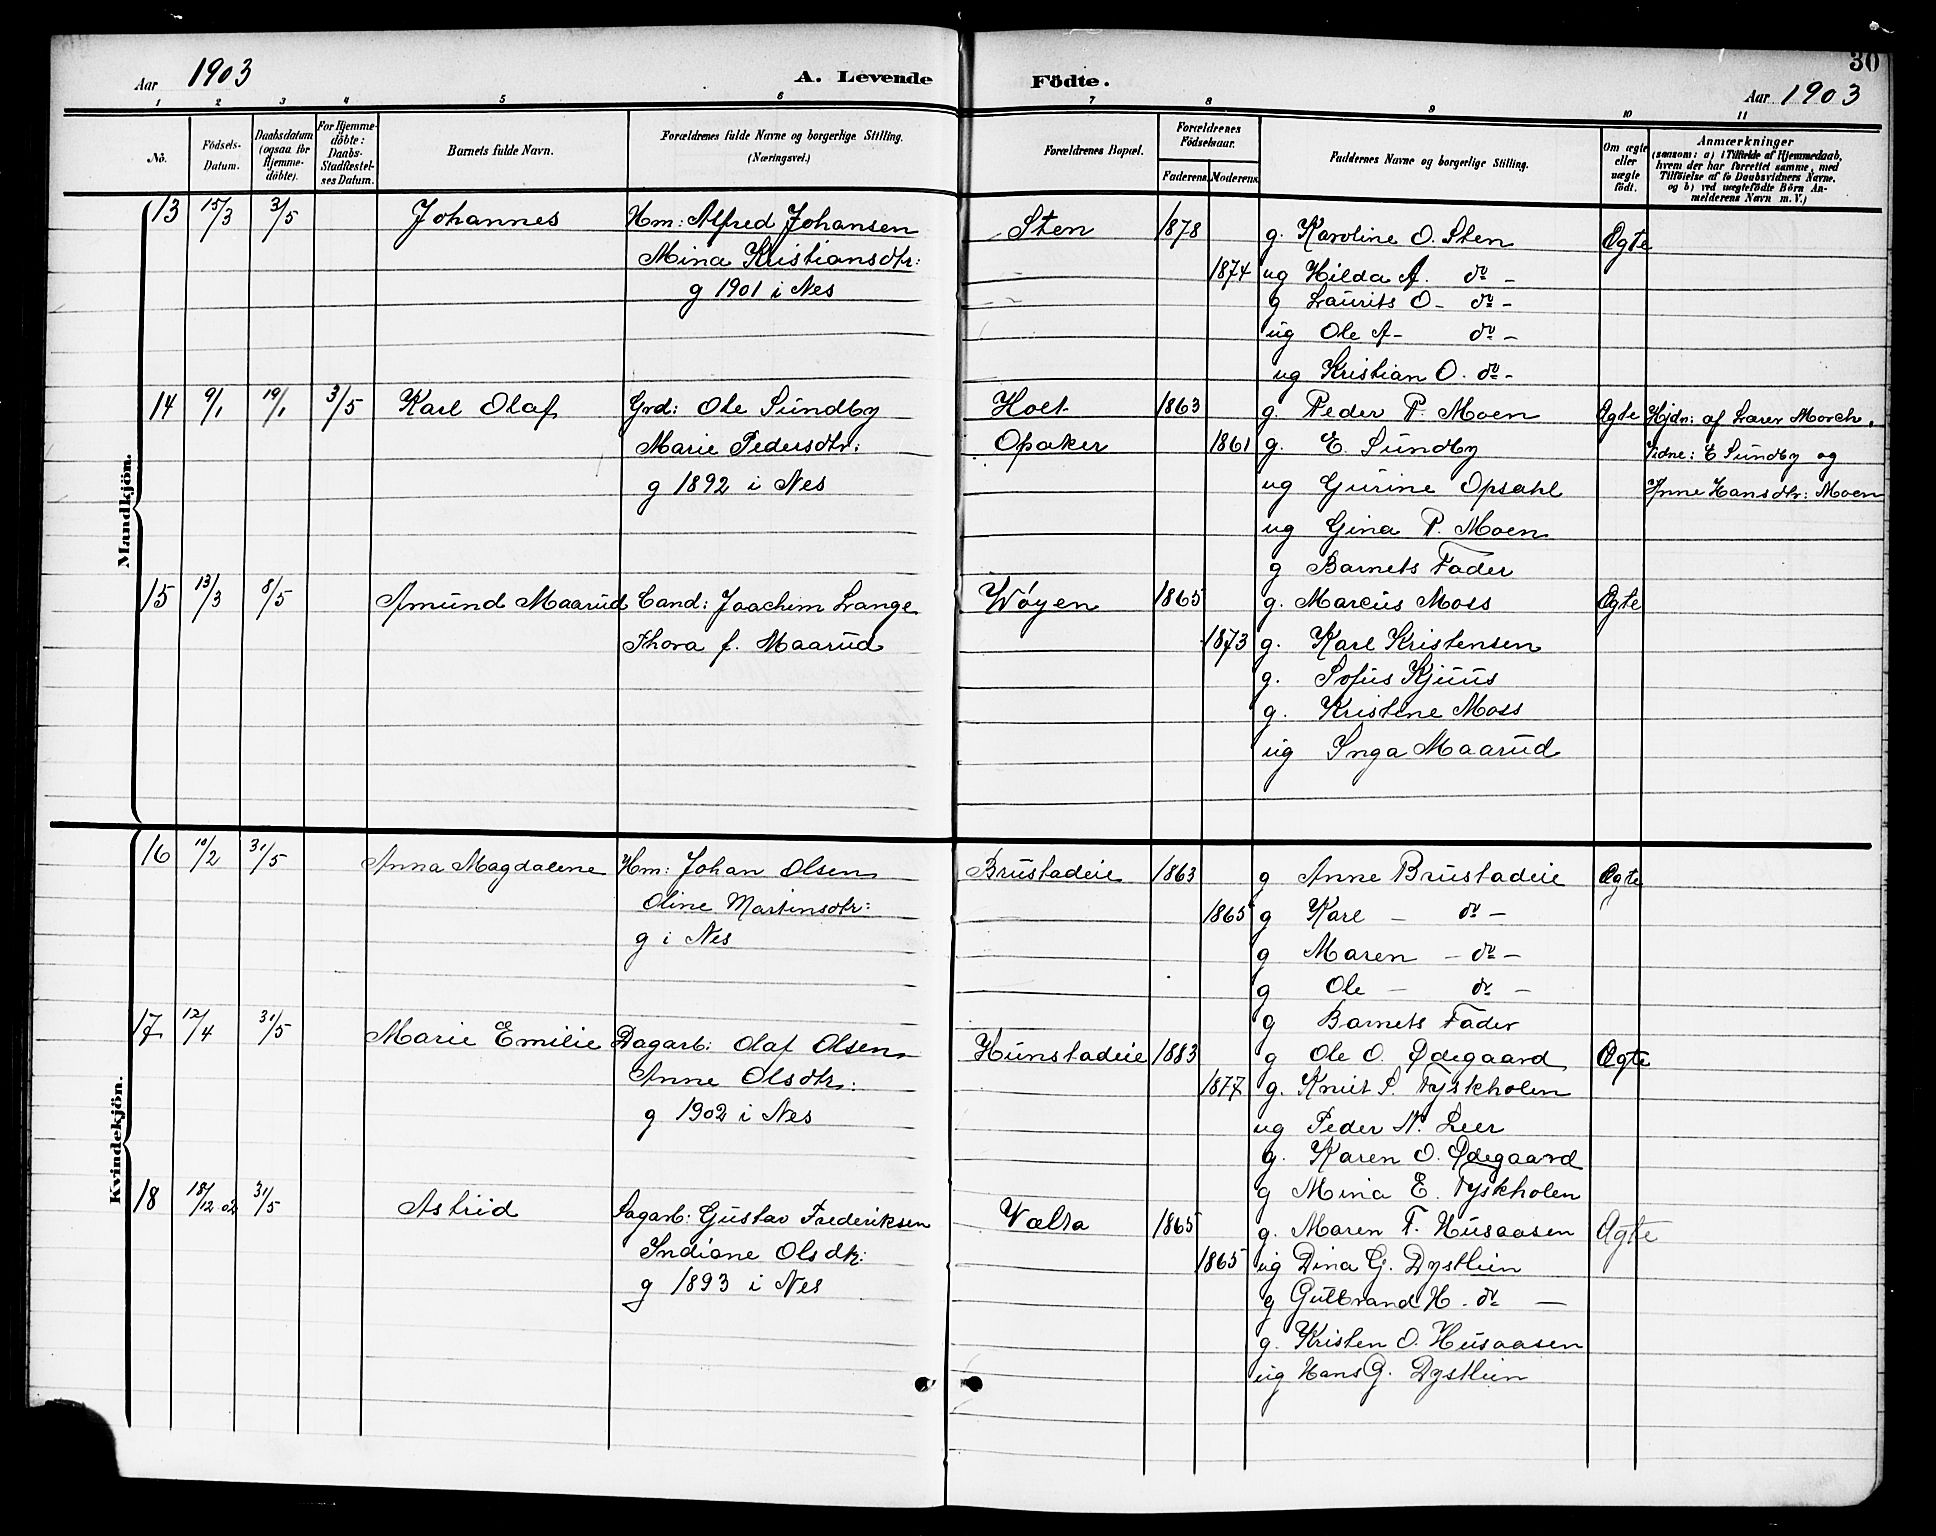 30
Aar 1903 A. Levende Födte. Aar 1903
1 2 3 4 5 6 7 8 9 10 11
No. Födsels-Datum. Daabsdatum (ogsaa for Hjemme-döbte). For Hjemme-döbte: Daabs-Stadfæstel-ses Datum. Barnets fulde Navn. Forældrenes fulde Navne og borgerlige Stilling. (Næringsvei.) Forældrenes Bopæl. Forældrenes Födselsaar. Faderens. Moderens. Faddernes Navne og borgerlige Stilling. Om ægte eller uægte födt. Anmærkninger (saasom: a) i Tilfælde af Hjemmedaab, hvem der har forrettet samme, med Tilföielse af to Daabsvidners Navne, og b) ved uægtefödte Börn An-melderens Navn m. V.)
Mandkjön.
13 15/3 3/5 Johannes Hm: Alfred Johansen Sten 1878 g. Karoline O. Sten Ægte
Mina Kristiansdtr: 1874 ug Hilda A. do -
g 1901 i Nes g Laurits O - do -
ug Ole A - do -
ug Kristian O. do -
14 9/1 19/1 3/5 Karl Olaf Grd: Ole Sundby Holt 1863 g. Peder P. Moen Ægte Hjdr: af Lærer Morch.
Marie Pedersdtr: Opaker 1861 g. E. Sundby Vidne: E Sundby og
g 1892 i Nes ug Gurine Opsahl Anne Hansdtr: Moen
ug Gina P. Moen
g Barnets Fader
15 13/3 8/5 Amund Maarud Cand: Joachim Lange Wöyen 1865 g. Marcus Moss Ægte
Thora f. Maarud 1873 g. Karl Kristensen
g. Sofus Kjuus
g. Kristine Moss
ug Inga Maarud
Kvindekjön.
16 10/2 31/5 Anna Magdalene Hm: Johan Olsen Brustadeie 1863 g Anne Brustadeie Ægte
Oline Martinsdtr: 1865 g Karl - do -
g i Nes g Maren - do -
g Ole - do -
g Barnets Fader
17 12/4 31/5 Marie Emilie Dagarb: Olaf Olsen Hunstadeie 1883 g Ole O. Ødegaard Ægte
Anne Olsdtr: 1877 g. Knut S. Tyskholen
g 1902 i Nes ug Peder N. Leer
g. Karen O. Ødegaard
g Mina E. Tyskholen
18 18/12 02 31/5 Astrid Dagarb: Gustav Frederiksen Vælta 1865 g. Maren F. Husaasen Ægte
Indiane Olsdtr: 1865 ug Dina G. Dystlien
g 1893 i Nes g Gulbrand H. do -
g. Kristen O. Husaasen
ug Hans G. Dystlien